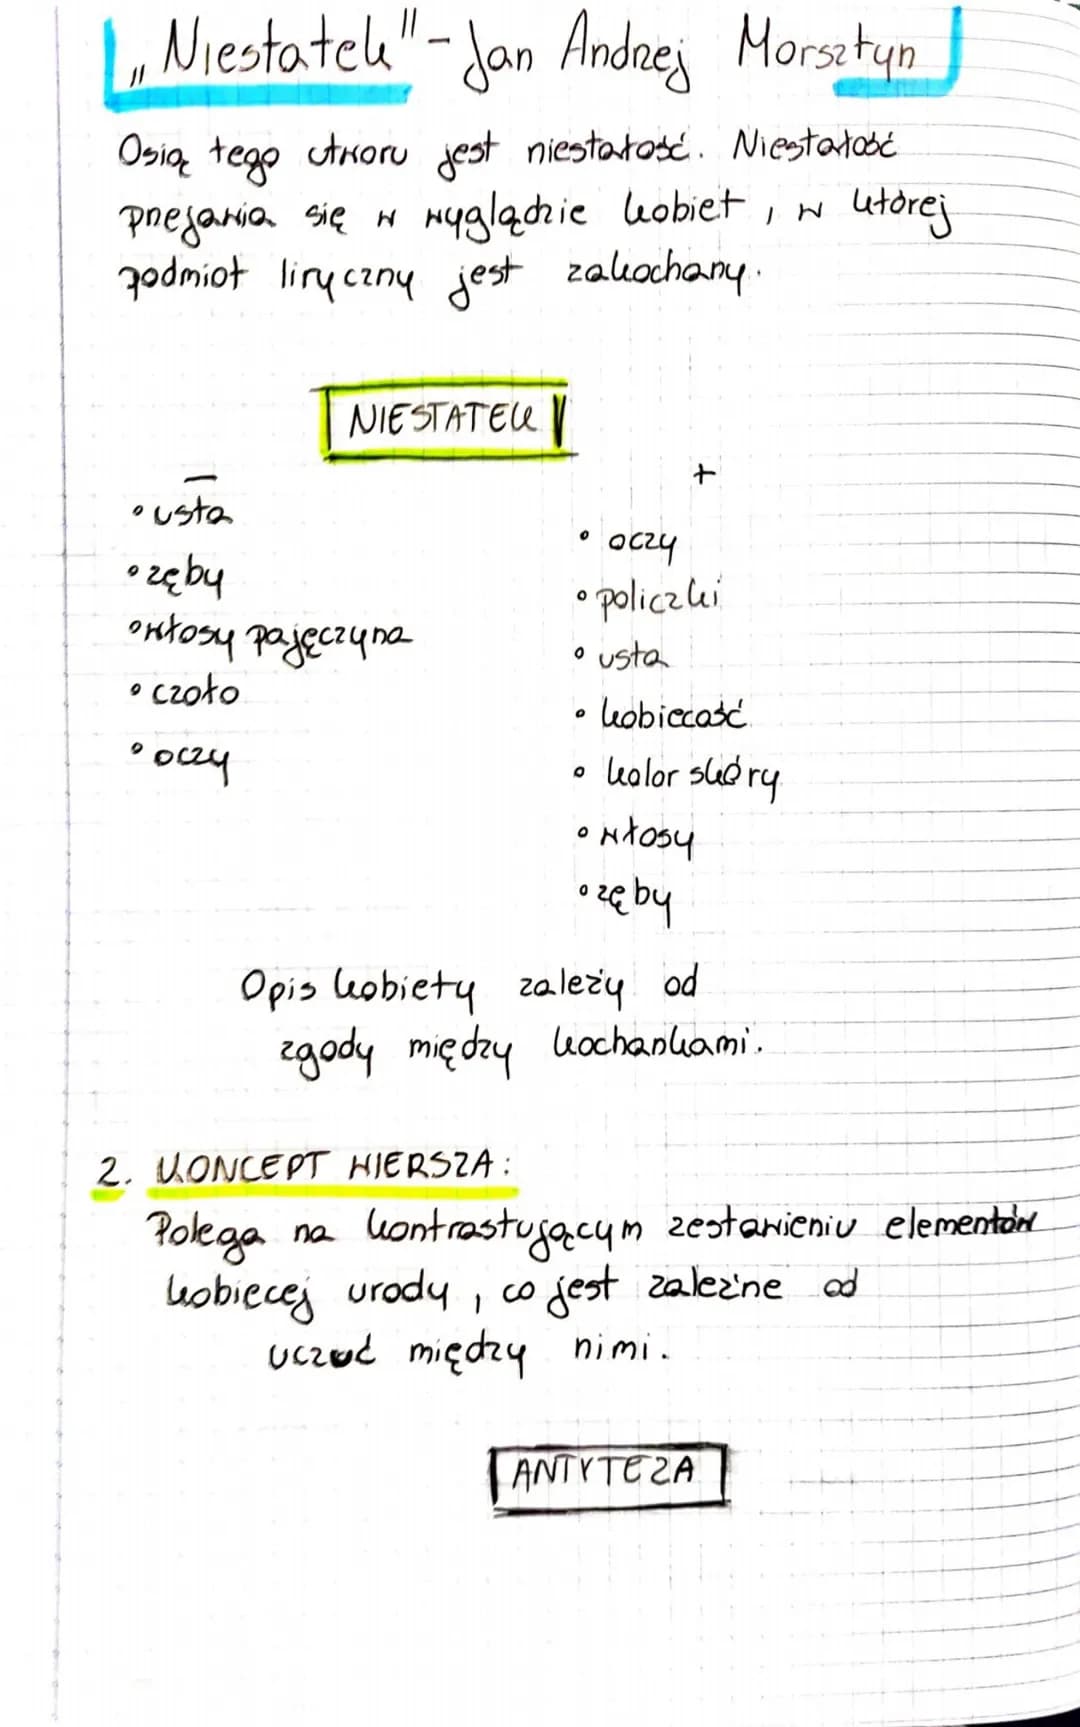 „Niestatek" - Jan Andrzej Morsztyn
Osią tego utworu jest niestałość. Niestałość
przejawia się w wyglądzie kobiet, w której
podmiot liryczny jest zakochany.
NIESTATEK
-
• usta
• zęby
• włosy pajęczyna
• czoło
• oczy
+
• oczy
• policzki
• usta
• kobiecość
• kolor skóry
• włosy
• zęby
Opis kobiety zależy od
zgody między kochankami.
2. KONCEPT WIERSZA:
Polega na kontrastującym zestawieniu elementów
kobiecej urody, co jest zależne od
uczuć między nimi.
ANTYTEZA